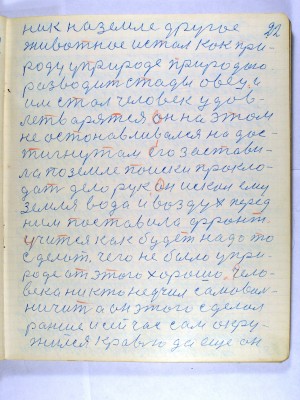 22
ник на земле другое
животное и стал как при-
роду у природе природою.
разводит стады овец, с
им стал человек удов-
летварятся он на этом
не останавливался на дос-
тигнутам его застави-
ла по земле поиски прокло-
дать дело рук он искал ему
земля вода и воздух перед
ним поставила фронт.
учится как будет надо то
сделает, чего не было у при-
роде от этого хорошо, чело-
века ни кто не учил самовол-
ничит а он этого сделал
раньше и сейчас сам окру-
жился кравью да еще он